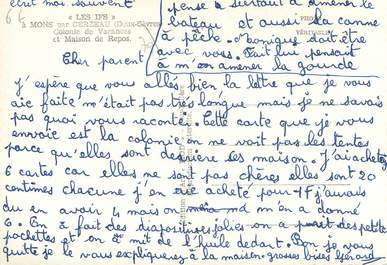 écrit moi souvent
66
« LES IFS »
à MONS par CERZEAU (Deux-Sèvres)
Colonie de Vacances
et Maison de Repos.
pense surtout à amener le
bateau et aussi la canne
à pêche. Monique doit être
avec vous. Fait lui pensait
à m'en amener la gourde
Cher parent
J'espère que vous allés bien la lettre que je vous
aie faite m'était pas très longue mais je ne savais
pas quoi vous raconté. Cette carte que je vous
envoie est la colonie on ne voit pas les tentes
parce qu'elles sont derrière les maison. J'ai acheté
6 cartes car elles ne son pas chères elles sont 20
centimes chacune j'en aie acheté pour 1F j'aurais
du en avoir 4 mais on m'en a donné
6. On a fait des diapositives jolies on a des petites
pochettes et on a mit de l'huile dedant. Bon je vous
quitte je le vous expliquerez à la maison. grosses bises Gérard